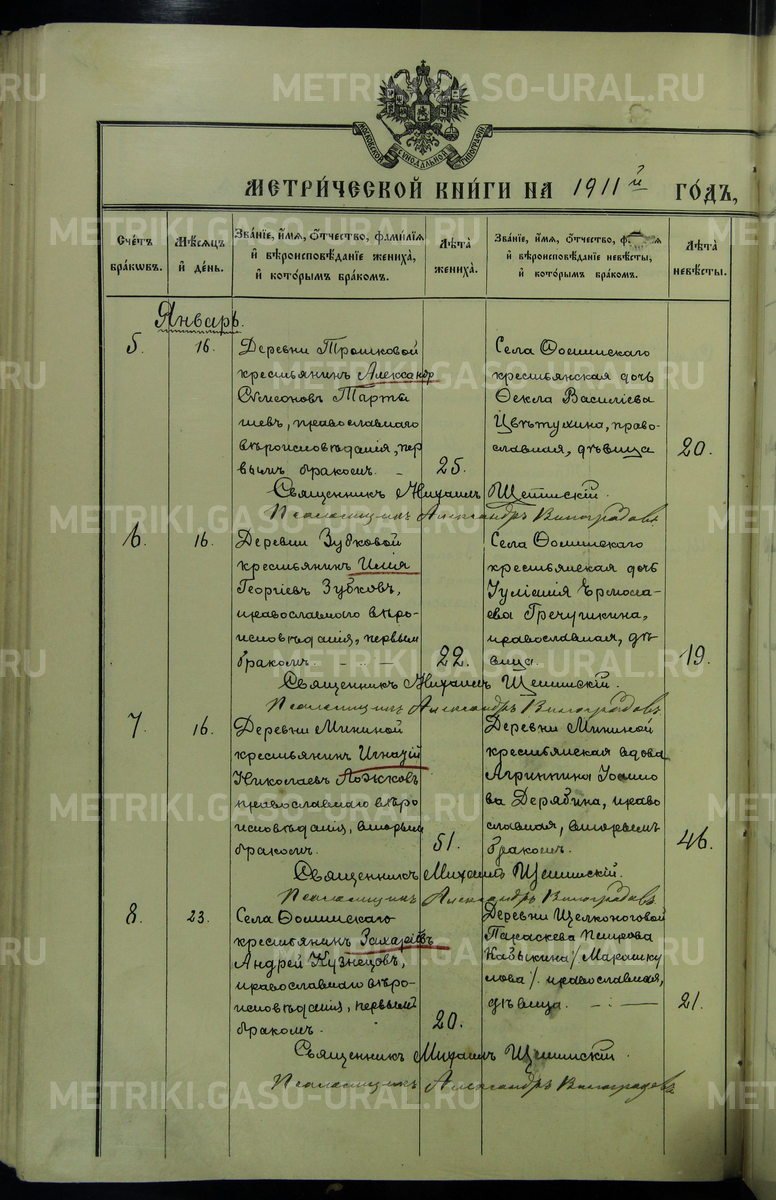 МЕТРИ́ЧЕСКОЙ КНИ́ГИ НА 1911й ГО́ДЪ,
Сче́тъ бра́ковъ.
Мѣ́сяцъ и҆ де́нь.
Зва́нїе, и҆́мѧ, ѻ҆́тчество, фами́лїѧ и҆ вѣроисповѣ́данїе жениха̀, и҆ кото́рымъ бра́комъ.
Лѣ́та жениха̀.
Зва́нїе, и҆́мѧ, ѻ҆́тчество, и҆ вѣроисповѣ́данїе невѣ́сты, и҆ кото́рымъ бра́комъ.
Лѣ́та невѣ́сты.
Январь.
5.
16.
Деревни Трошковой
крестьянинъ Александр
Симеоновъ Тарты
шевъ, православнаго
вѣроисповѣданія, пер
вымъ бракомъ.
25.
Села Фоминскаго
крестьянская дочь
Ѳекла Василіева
Цвѣтухина, право-
славная, дѣвица
20.
Священникъ Михаилъ
Псаломщикъ Александръ Виноградовъ
6.
16.
Деревни Зубковой
крестьянинъ Илія
Георгіевъ Зубковъ,
православнаго вѣро-
исповѣданія, первым
бракомъ.
22.
Села Фоминскаго
крестьянская дочь
Іуліанія Ермола-
ева Гречушкина,
православная, дѣ-
вица.
19.
Священникъ Михаилъ
Псаломщикъ Александръ Виноградовъ
7.
16.
Деревни Мининой
крестьянинъ Игнатій
Николаевъ Ложковъ
православнаго вѣро
исповѣданія, вторым
бракомъ.
51.
Деревни Мининой
крестьянская вдова
Агриппина Іоанно
ва Дерябина, право
славная, вторымъ
бракомъ.
46.
Священникъ Михаилъ
Псаломщикъ Александръ Виноградовъ
8.
23.
Села Фоминскаго
крестьянинъ Захаріевъ
Андрей Кузнецовъ,
православнаго вѣро-
исповѣданія, первымъ
бракомъ.
20.
Деревни Щелконоговой
Параскева Петрова
Кабыкина / Марашку
лова /. православная,
дѣвица.
21.
Священникъ Михаилъ
Псаломщикъ Александръ Виноградовъ
METRIKI.GASO-URAL.RU